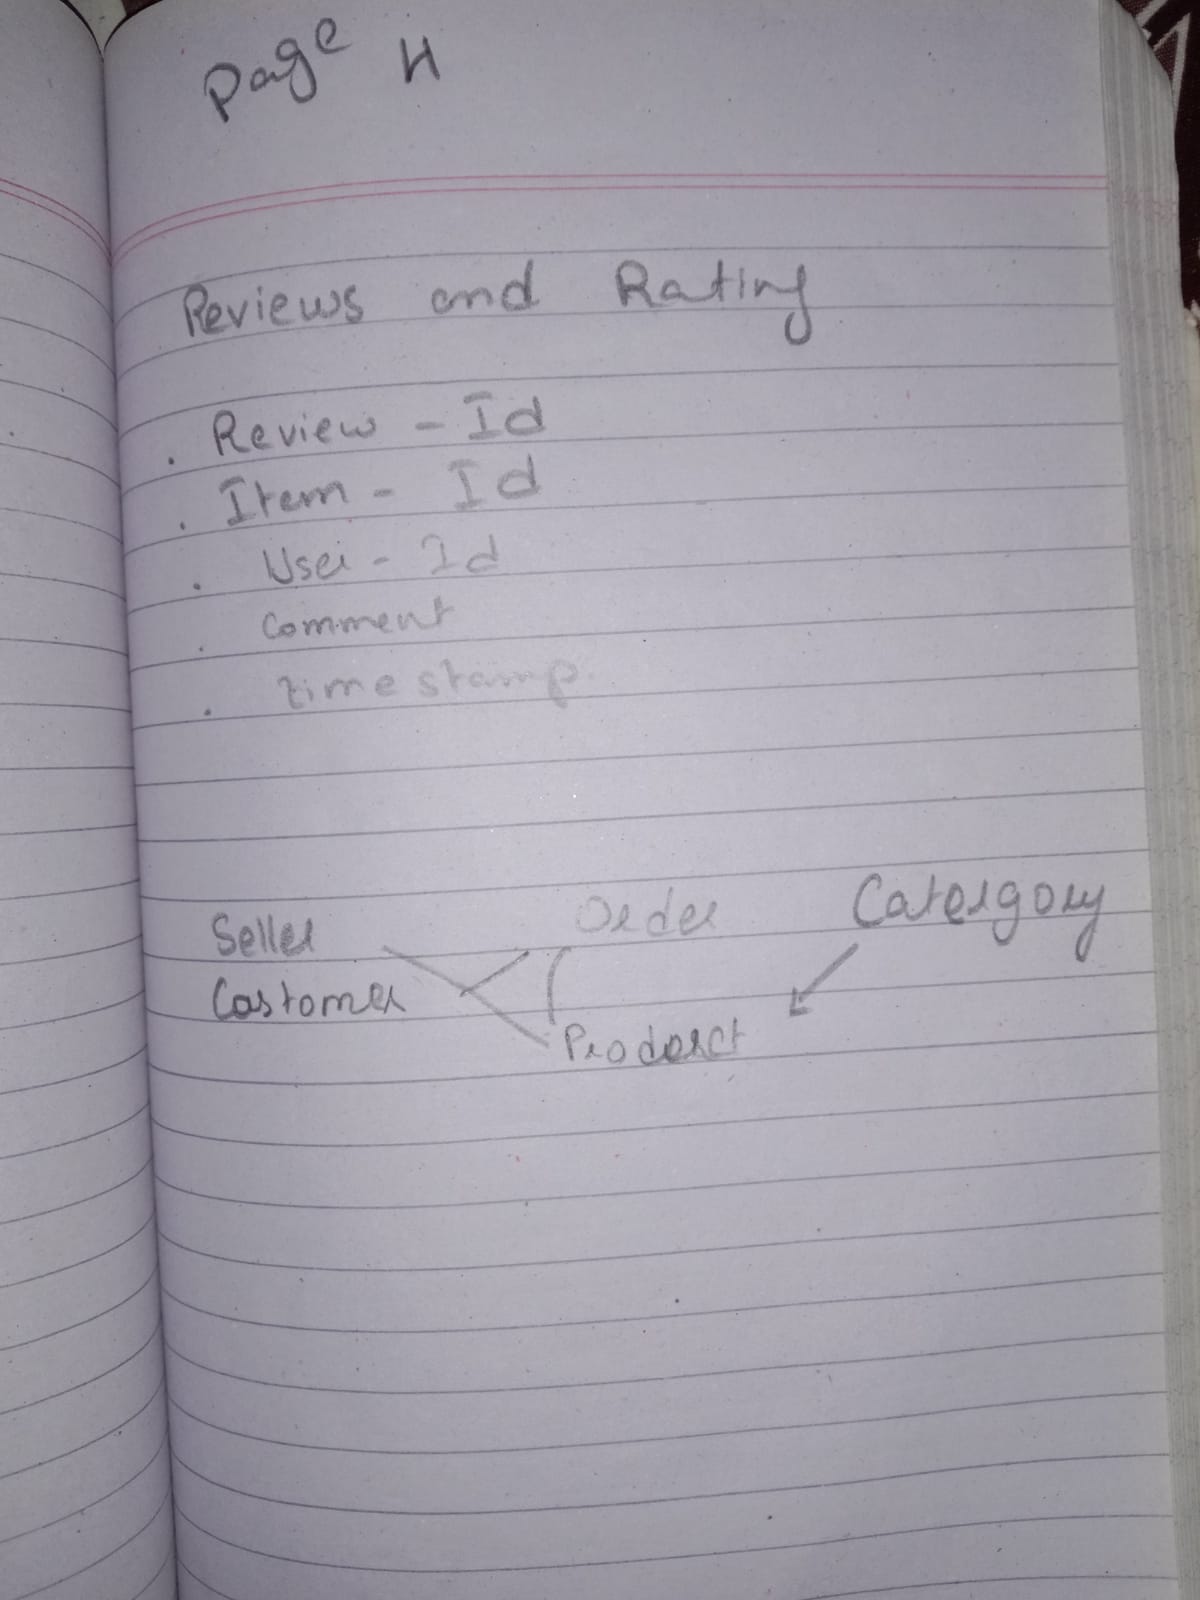 Page 4
Reviews and Rating
. Review - Id
. Item - Id
. User - Id
. Comment
. timestamp.
Seller Order Catergory
Costomer
Product